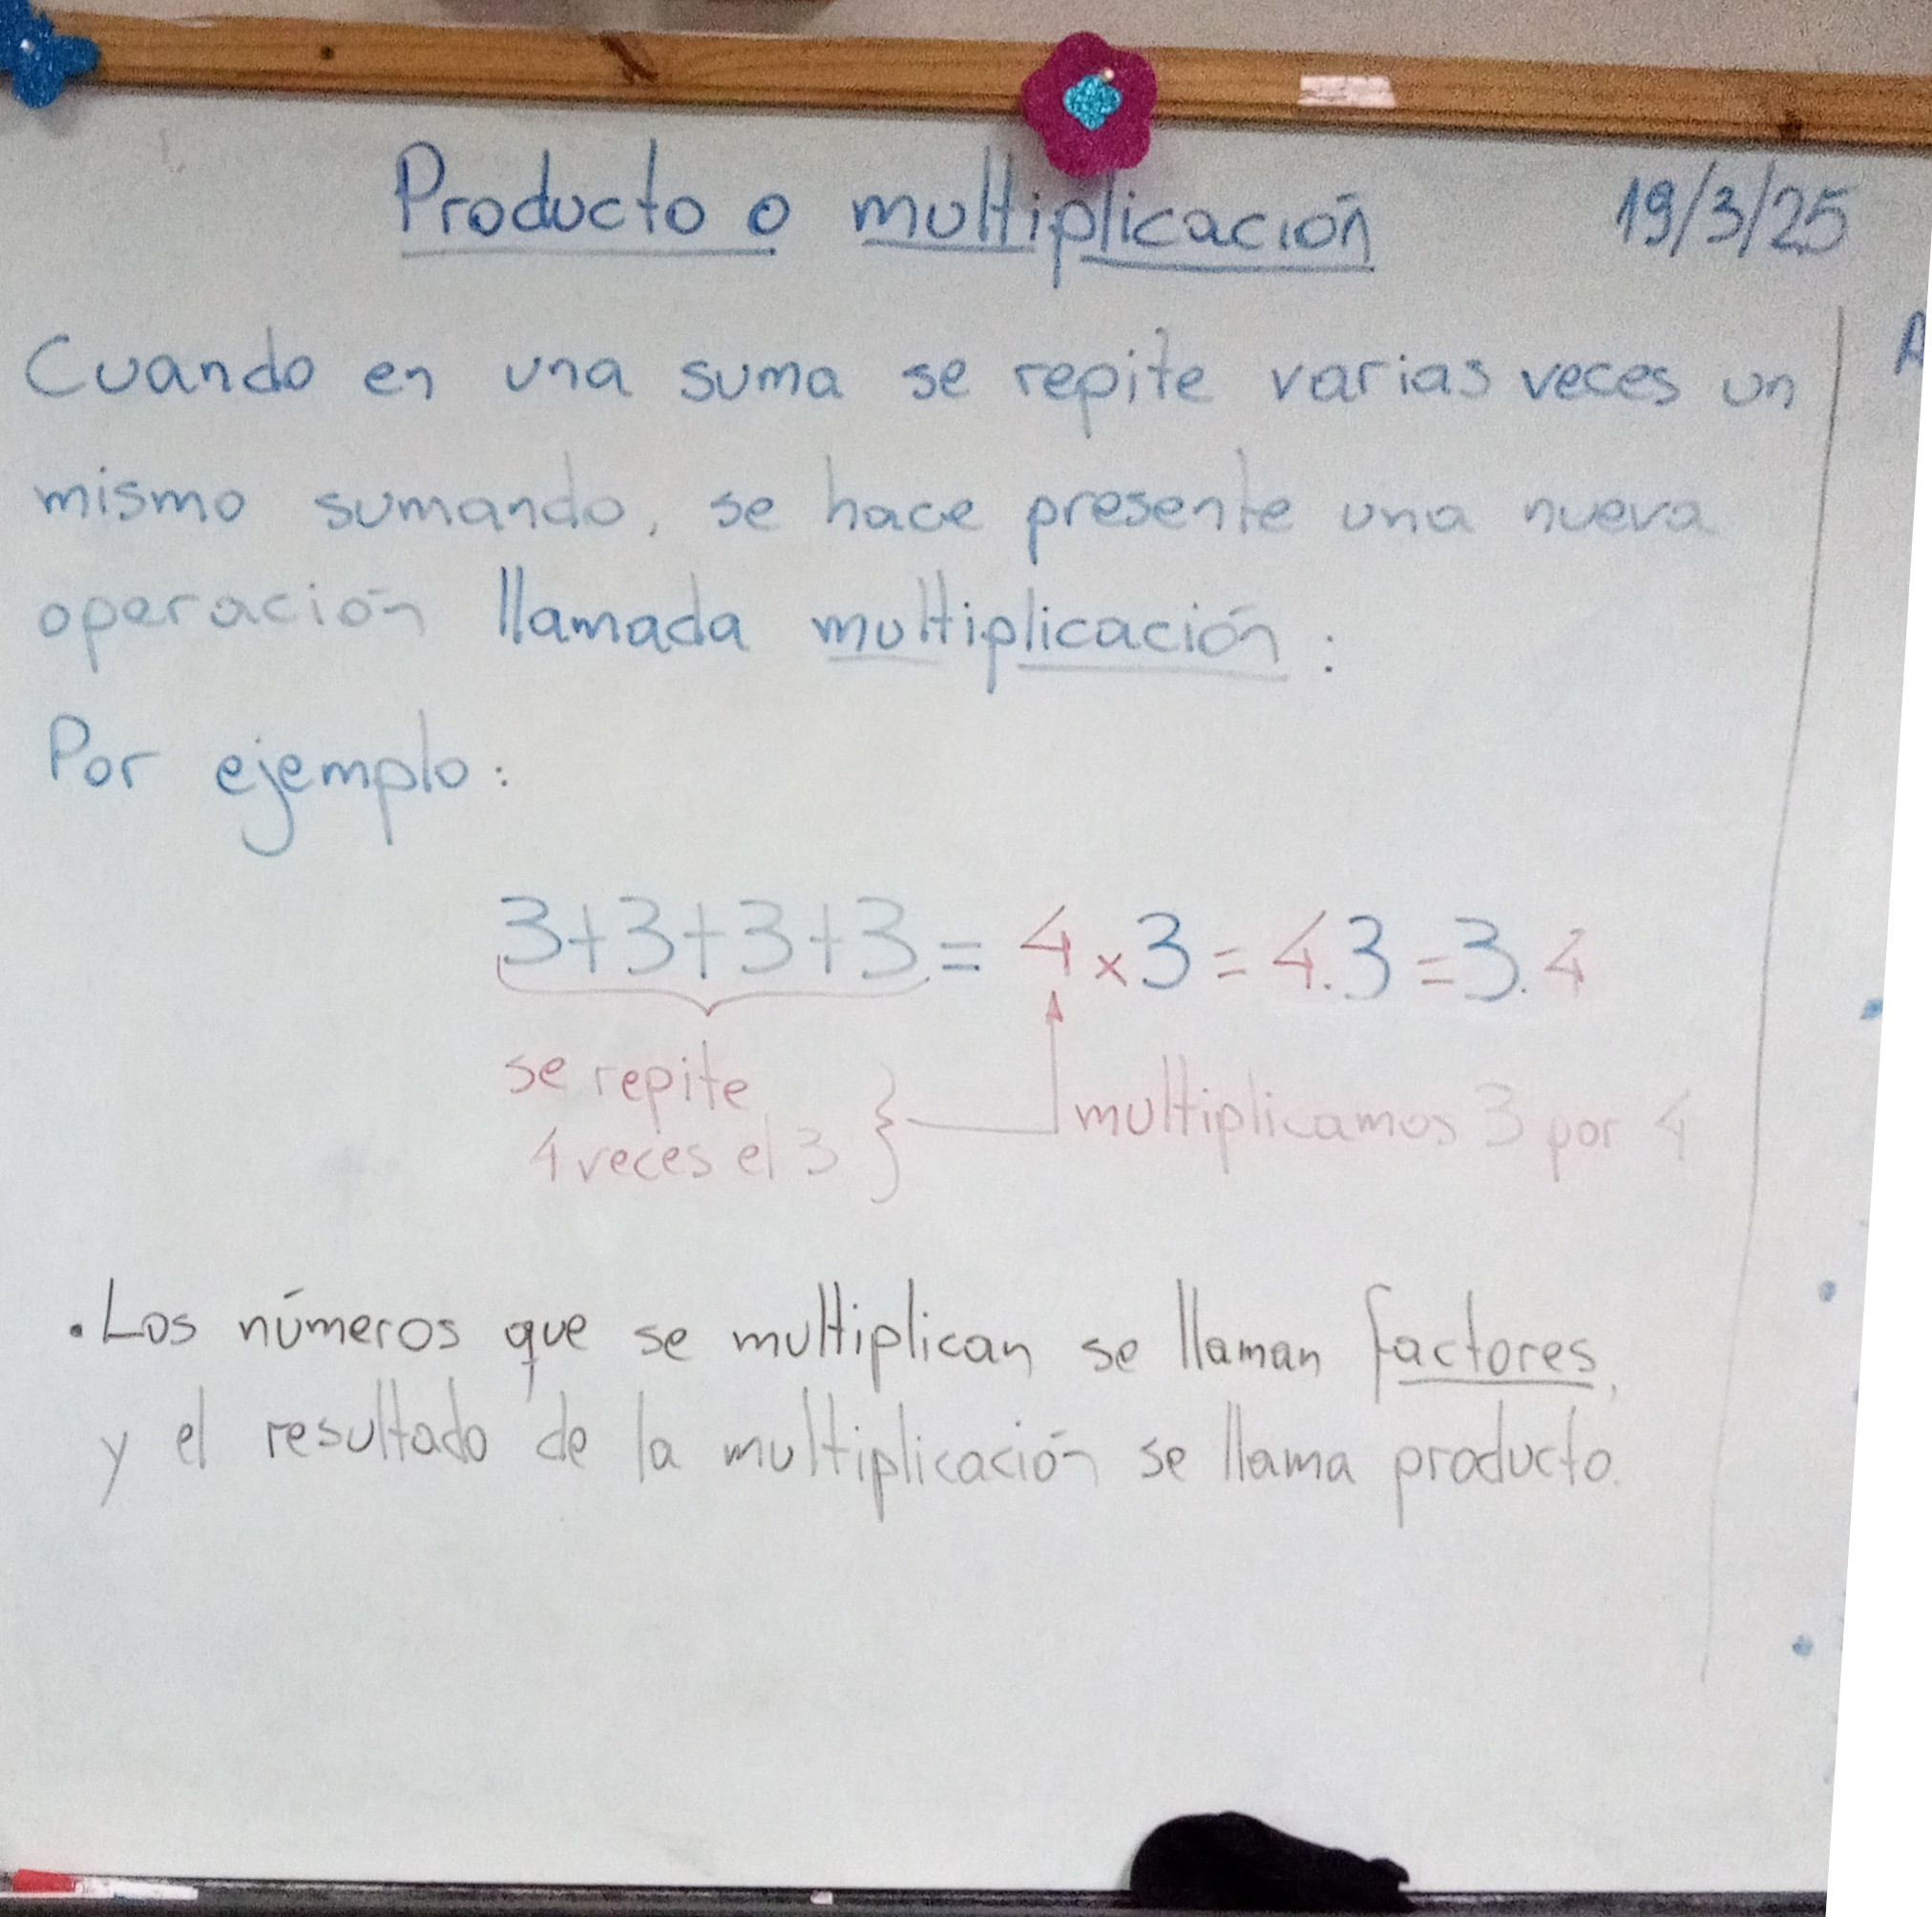 Producto o multiplicación 19/3/25
Cuando en una suma se repite varias veces un
mismo sumando, se hace presente una nueva
operación llamada multiplicación:
Por ejemplo:
3+3+3+3 = 4 x 3 = 4.3 = 3.4
se repite
4 veces el 3 } multiplicamos 3 por 4
. Los números que se multiplican se llaman factores,
y el resultado de la multiplicación se llama producto.